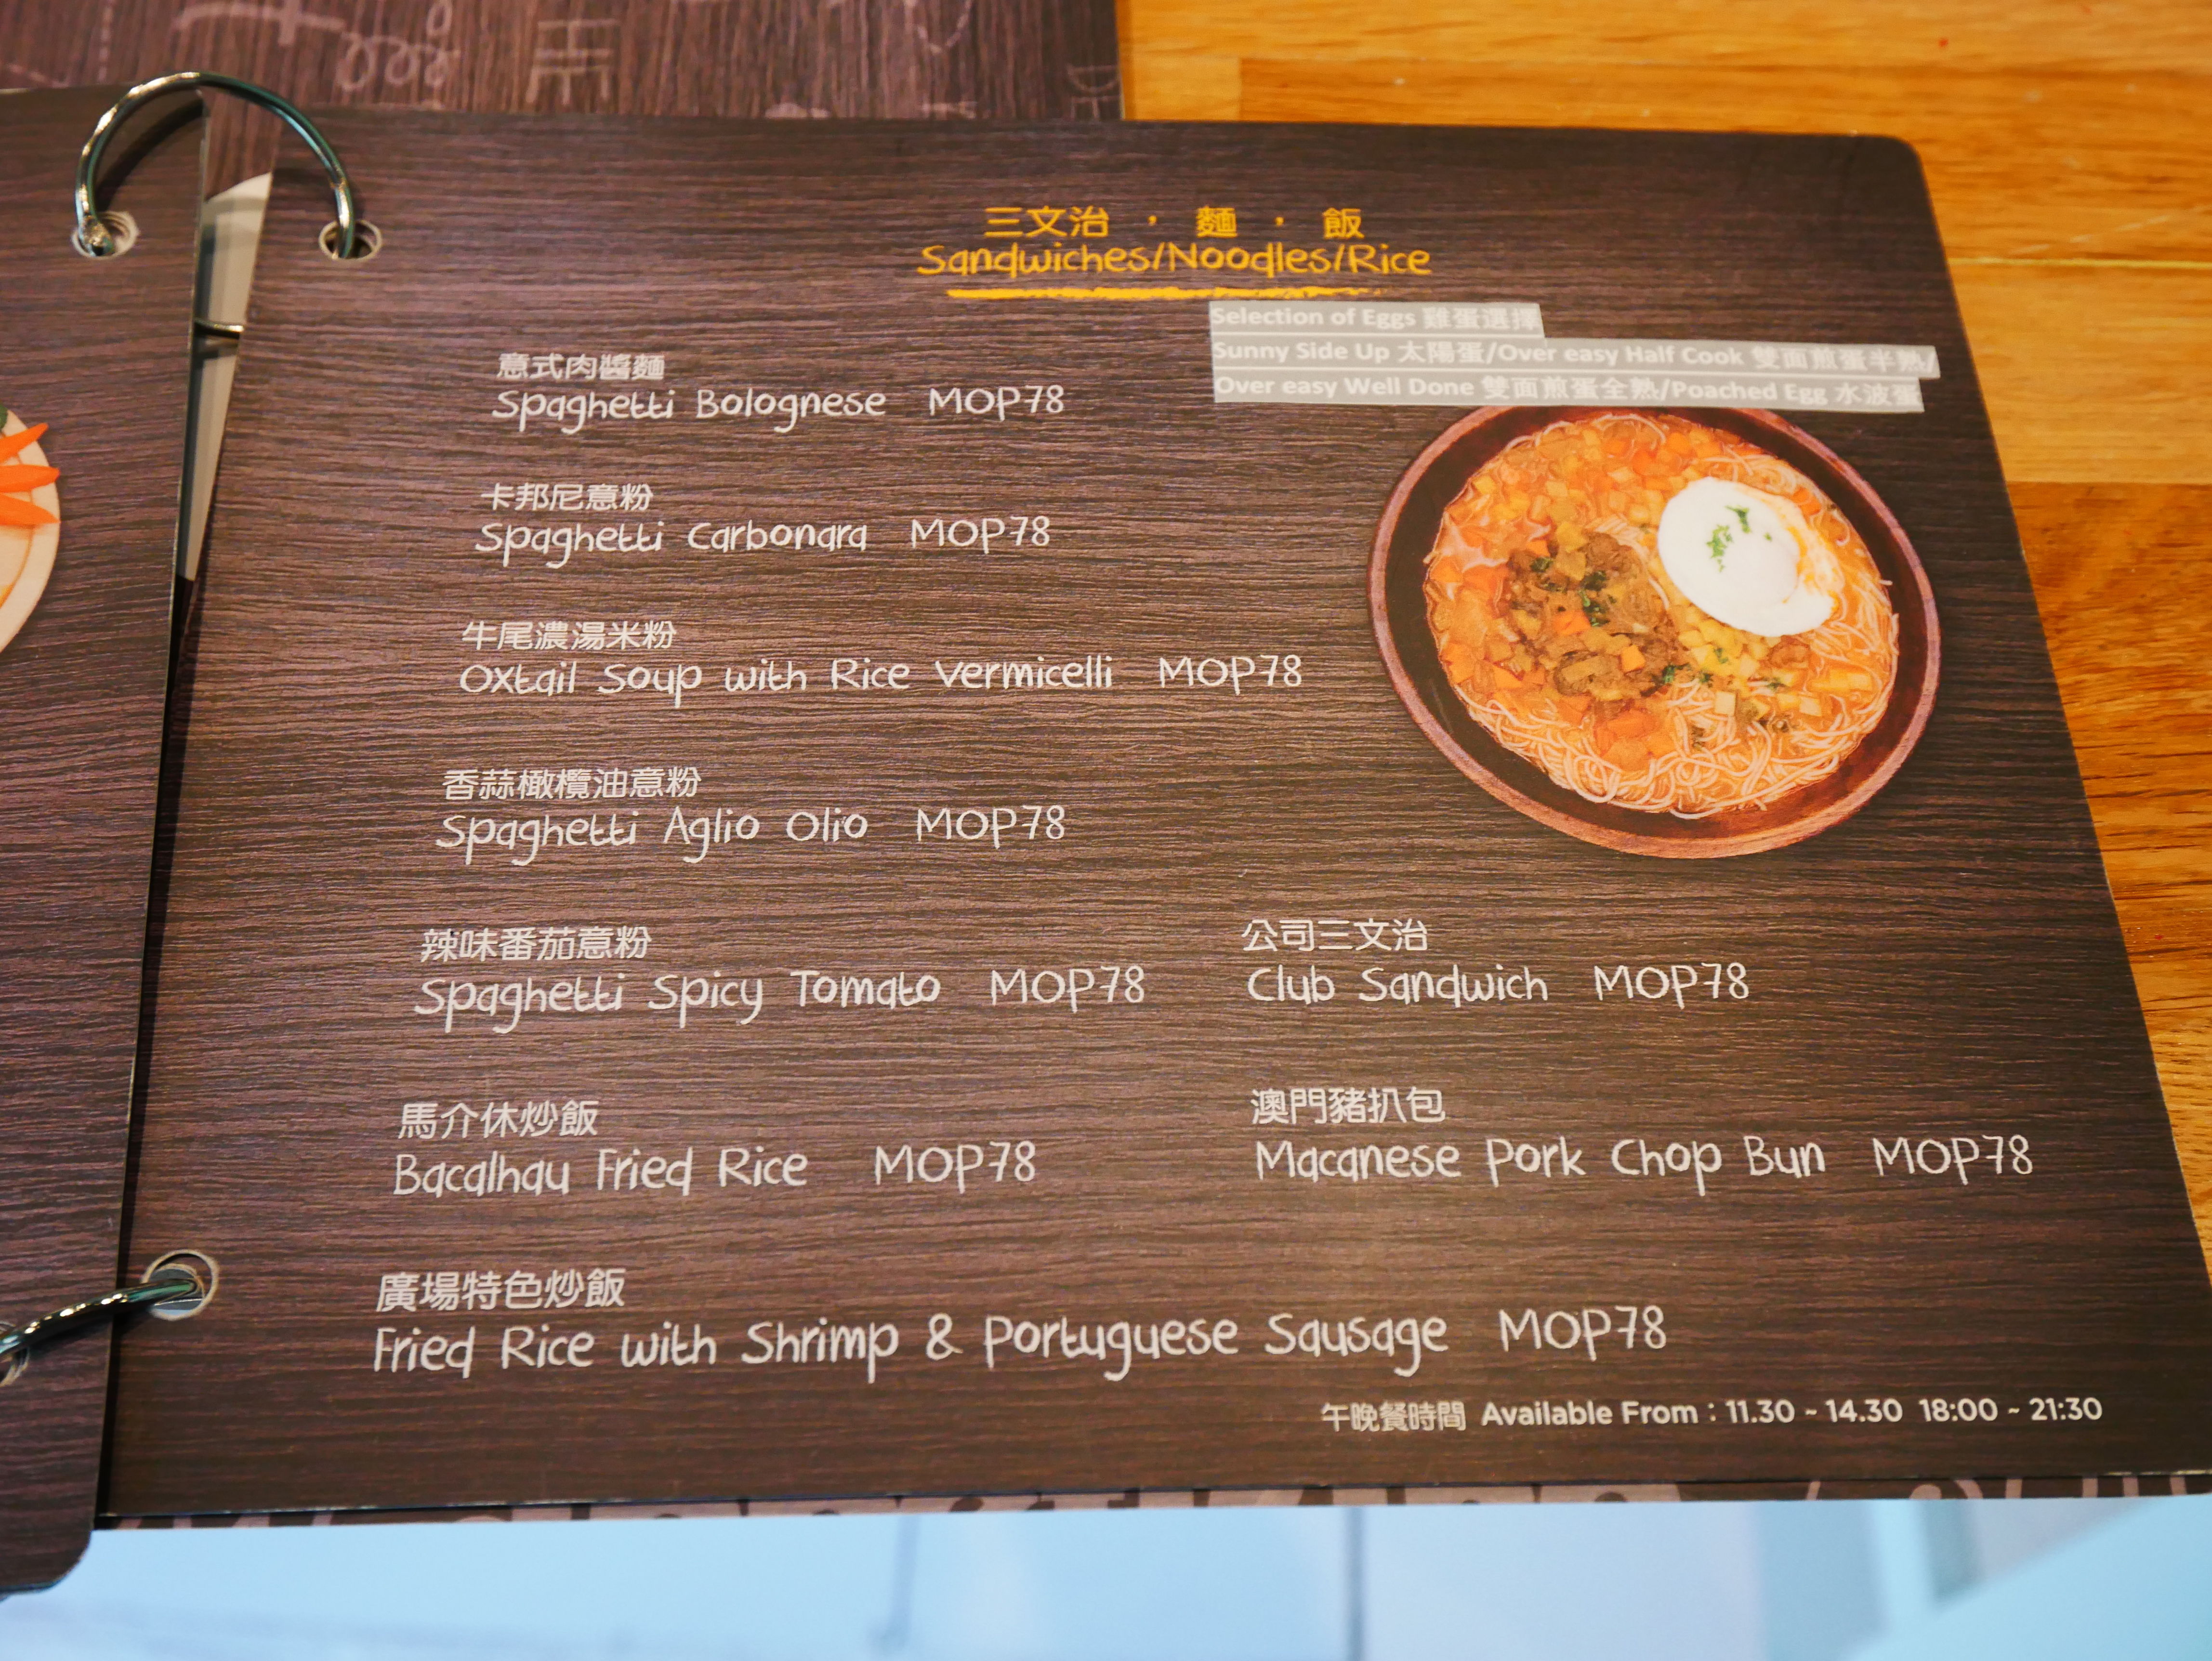 三文治 ， 麵 ， 飯
Sandwiches/Noodles/Rice
Selection of Eggs 雞蛋選擇
Sunny Side Up 太陽蛋/Over easy Half Cook 雙面煎蛋半熟/
Over easy Well Done 雙面煎蛋全熟/Poached Egg 水波蛋
意式肉醬麵
Spaghetti Bolognese MOP78
卡邦尼意粉
Spaghetti Carbonara MOP78
牛尾濃湯米粉
Oxtail Soup with Rice Vermicelli MOP78
香蒜橄欖油意粉
Spaghetti Aglio Olio MOP78
辣味番茄意粉
Spaghetti Spicy Tomato MOP78
公司三文治
Club Sandwich MOP78
馬介休炒飯
Bacalhau Fried Rice MOP78
澳門豬扒包
Macanese Pork Chop Bun MOP78
廣場特色炒飯
Fried Rice with Shrimp & Portuguese Sausage MOP78
午晚餐時間 Available From : 11.30 ~ 14.30 18:00 ~ 21:30